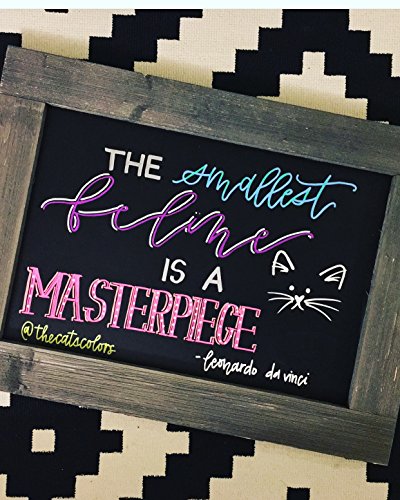 THE smallest
feline
IS A
MASTERPIECE
-leonardo da vinci
@thecatscolors